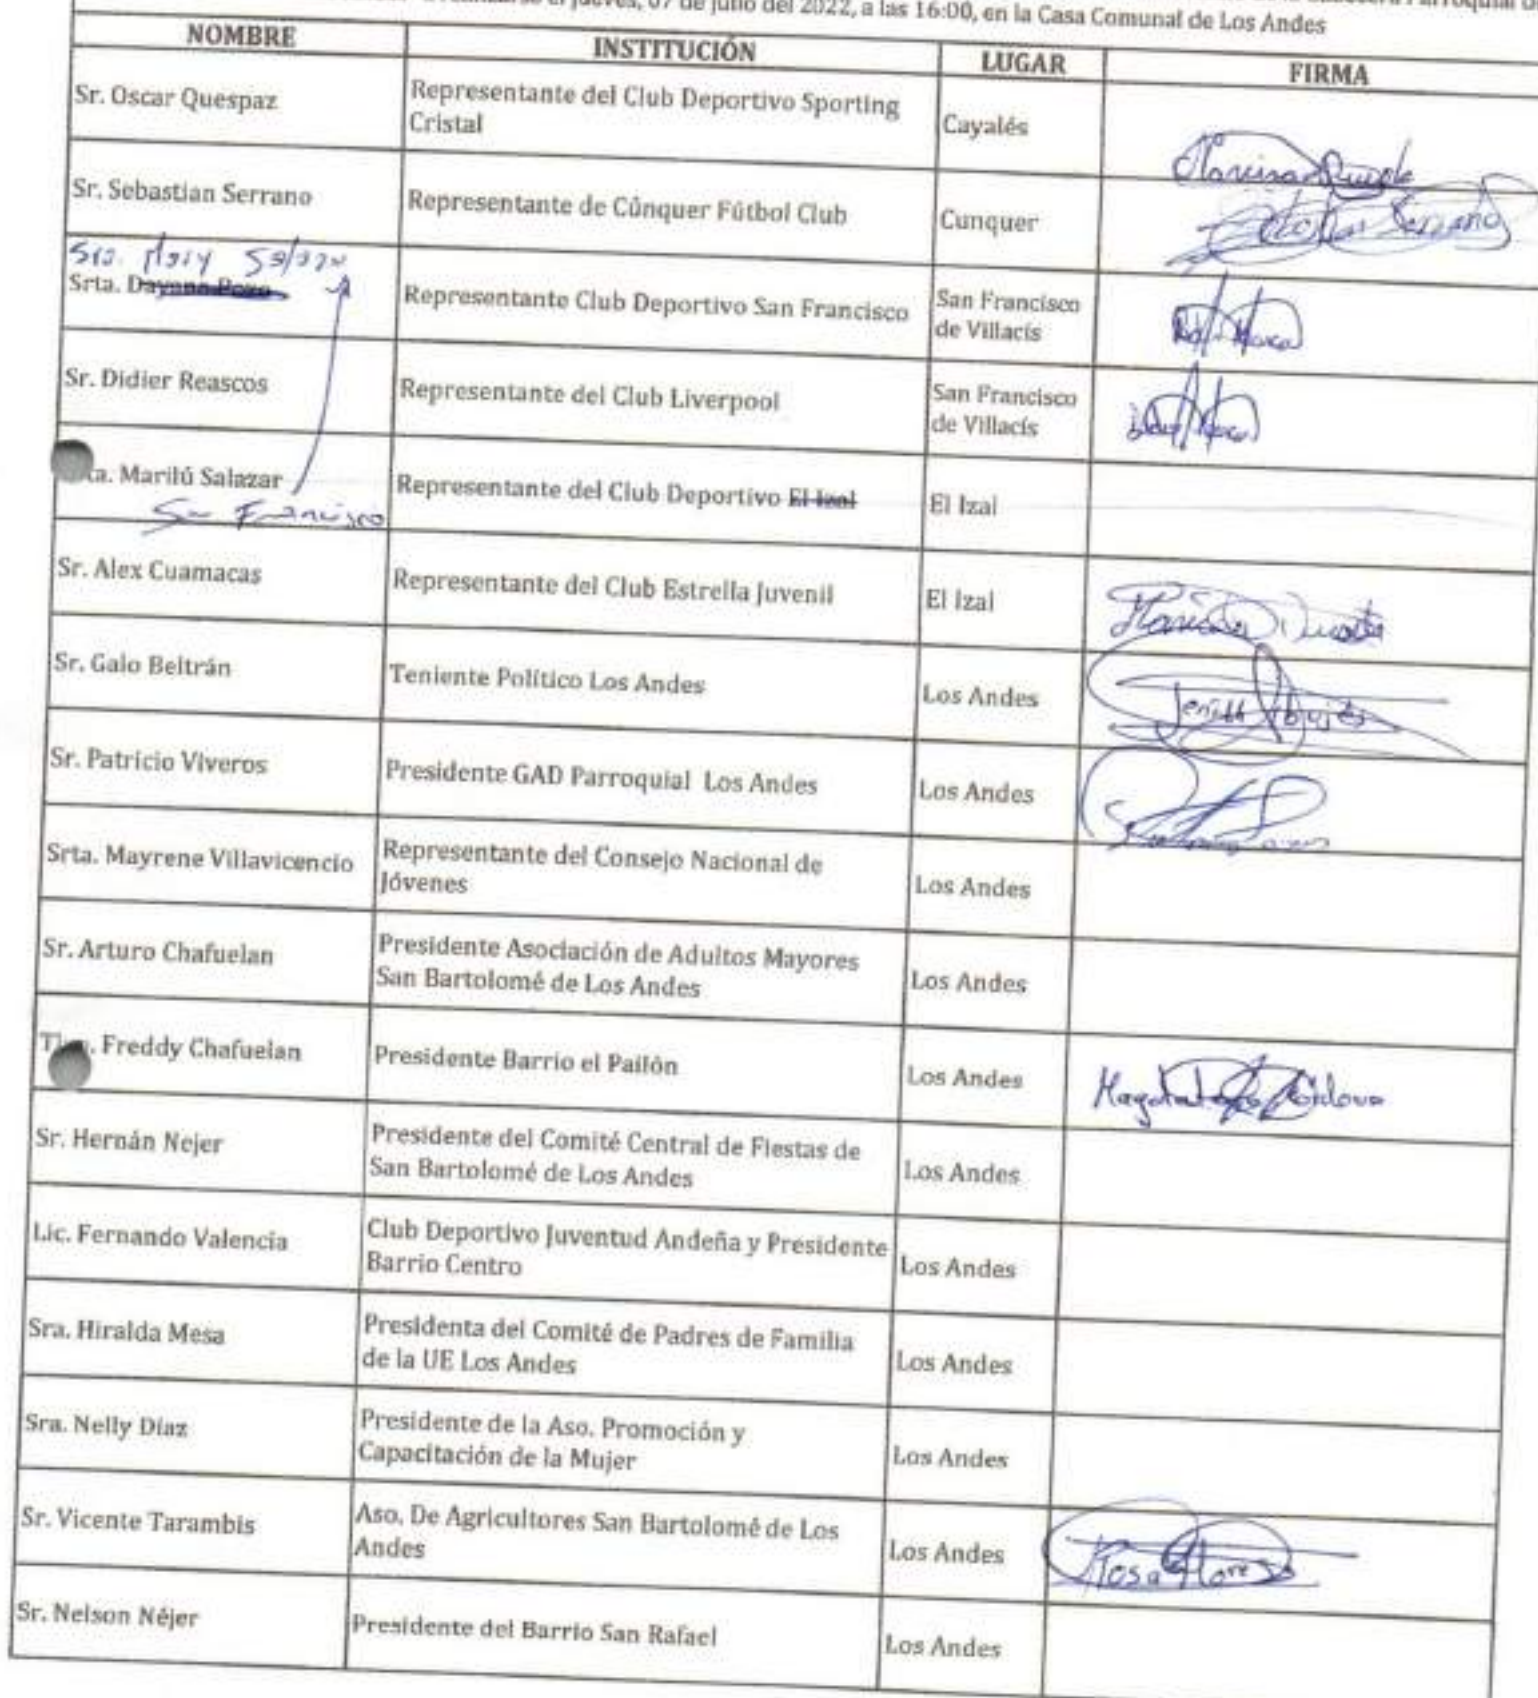 jueves, 07 de julio del 2022, a las 16:00, en la Casa Comunal de Los Andes
NOMBRE INSTITUCIÓN LUGAR FIRMA
Sr. Oscar Quespaz Representante del Club Deportivo Sporting
Cristal Cayalés
Sr. Sebastian Serrano Representante de Cúnquer Fútbol Club Cunquer Serrano
Srta. Representante Club Deportivo San Francisco San Francisco
de Villacís
Sr. Didier Reascos Representante del Club Liverpool San Francisco
de Villacís
Marilú Salazar Representante del Club Deportivo El Izal El Izal
San Francisco
Sr. Alex Cuamacas Representante del Club Estrella Juvenil El Izal
Sr. Galo Beltrán Teniente Político Los Andes Los Andes
Sr. Patricio Viveros Presidente GAD Parroquial Los Andes Los Andes
Srta. Mayrene Villavicencio Representante del Consejo Nacional de
Jóvenes Los Andes
Sr. Arturo Chafuelan Presidente Asociación de Adultos Mayores
San Bartolomé de Los Andes Los Andes
Freddy Chafuelan Presidente Barrio el Pailón Los Andes
Sr. Hernán Nejer Presidente del Comité Central de Fiestas de
San Bartolomé de Los Andes Los Andes
Lic. Fernando Valencia Club Deportivo Juventud Andeña y Presidente
Barrio Centro Los Andes
Sra. Hiralda Mesa Presidenta del Comité de Padres de Familia
de la UE Los Andes Los Andes
Sra. Nelly Díaz Presidente de la Aso. Promoción y
Capacitación de la Mujer Los Andes
Sr. Vicente Tarambis Aso. De Agricultores San Bartolomé de Los
Andes Los Andes Rosa Flores
Sr. Nelson Néjer Presidente del Barrio San Rafael Los Andes